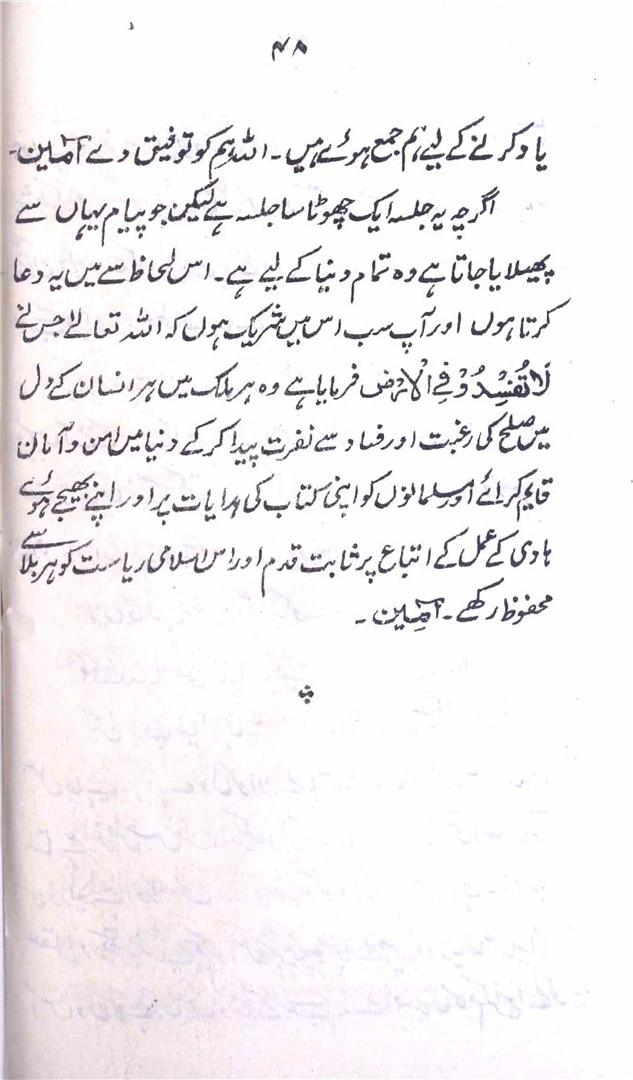 ۴۸
یاد کرنے کے لیے ہم جمع ہوئے ہیں۔ اللہ ہم کو توفیق دے آمین۔
اگرچہ یہ جلسہ ایک چھوٹا سا جلسہ ہے لیکن جو پیام یہاں سے
پھیلایا جاتا ہے وہ تمام دنیا کے لیے ہے۔ اس لحاظ سے میں یہ دعا
کرتا ہوں اور آپ سب اس میں شریک ہوں کہ اللہ تعالےٰ جس نے
لَا تُفْسِدُوْ فِی الْاَرْضِ فرمایا ہے وہ ہر ملک میں ہر انسان کے دل
میں صلح کی رغبت اور فساد سے نفرت پیدا کر کے دنیا میں امن و امان
قایم کرائے اور مسلمانوں کو اپنی کتاب کی ہدایات پر اور اپنے بھیجے ہوئے
ہادی کے عمل کے اتباع پر ثابت قدم اور اس اسلامی ریاست کو ہر بلا سے
محفوظ رکھے۔ آمین۔